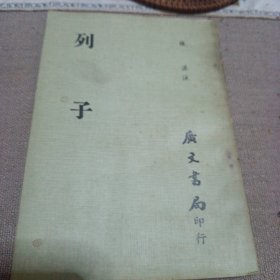 列子
張湛注
廣文書局印行